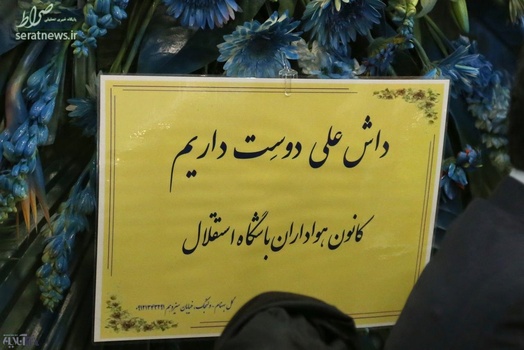 صراط
پایگاه خبری تحلیلی
seratnews.ir
داش علی دوستِ داریم
کانون هواداران باشگاه استقلال